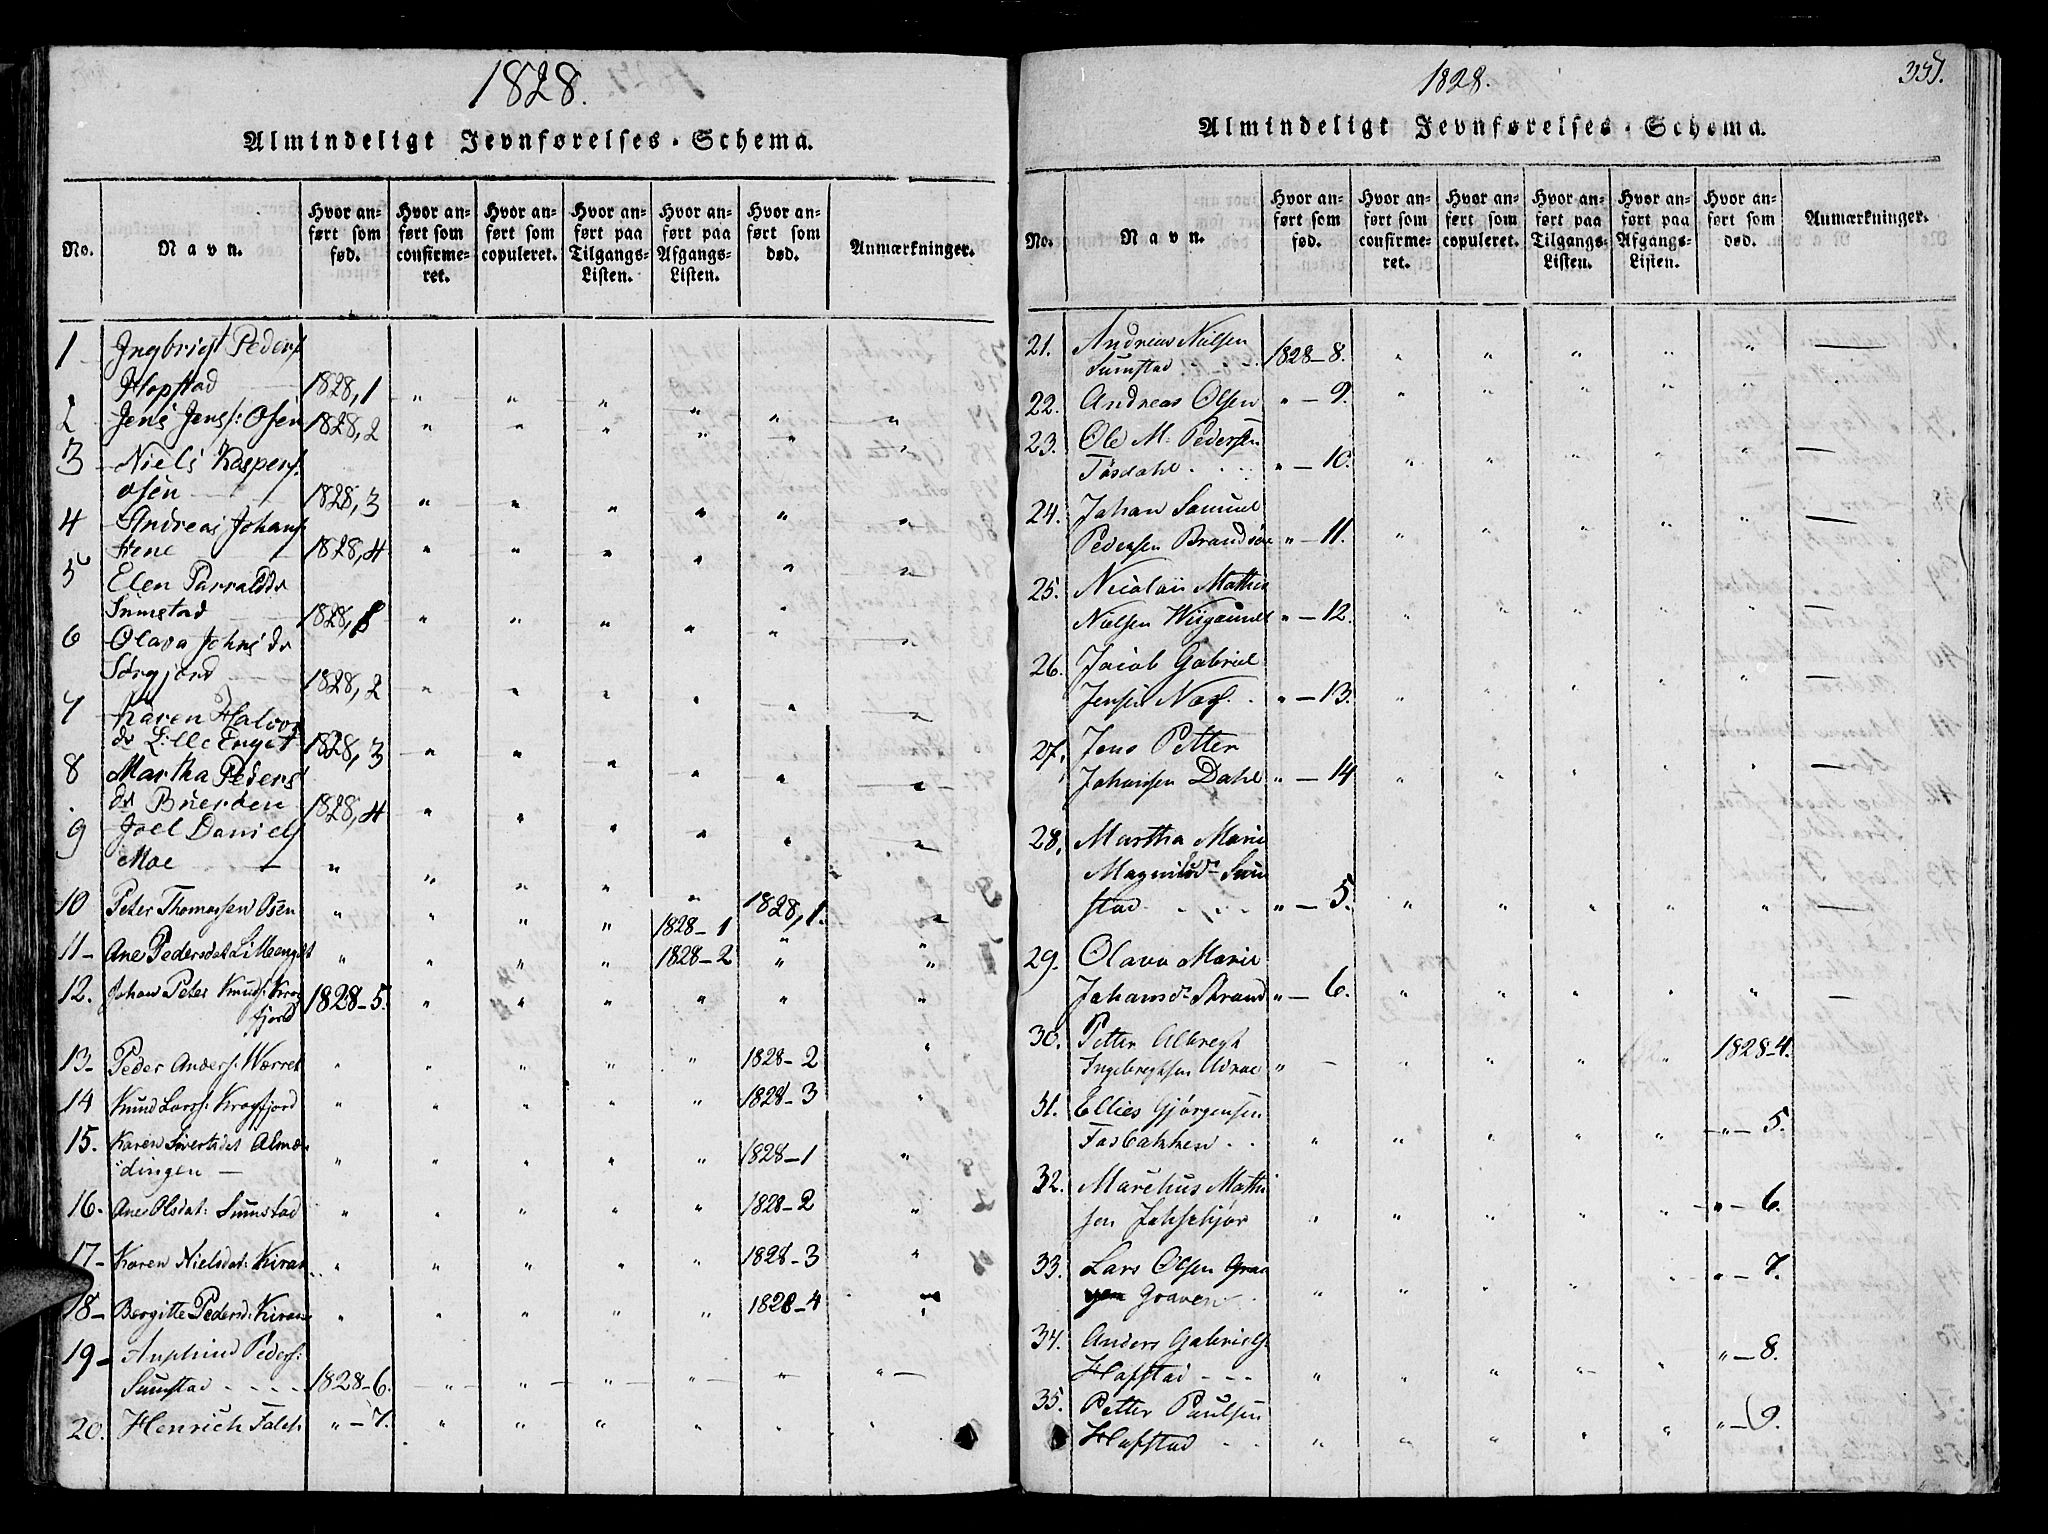 1828.
Almindeligt Jevnførelses-Schema.
No.
Navn.
Hvor an-
ført som
fød.
Hvor an-
ført som
confirme-
ret.
Hvor an-
ført som
copuleret.
Hvor an-
ført paa
Tilgangs-
Listen.
Hvor an-
ført paa
Afgangs-
Listen.
Hvor an-
ført som
død.
Anmærkninger.
1 Ingbrigt Peders
Hopstad 1828,1 " " " " " "
2 Jens Jenss: Osen 1828,2 " " " " " "
3 Niels Kaspers:
Osen 1828,3 " " " " " "
4 Andreas Johans
Hene 1828,4 " " " " " "
5 Elen Parralds dr
Sumstad 1828,1 " " " " " "
6 Olava Johns dr
Sørgjord 1828,2 " " " " " "
7 Karen Halvor
dr Lille Enget 1828,3 " " " " " "
8 Martha Peders
dr Buerøen 1828,4 " " " " " "
9 Joel Daniels
Moe " " " " " "
10 Peter Thomassen Osen " " " " 1828-1 1828,1. "
11- Ane Pedersdat Lilleenget " " " " 1828-2 " "
12. Johan Peter Knuds: Krog
fjord 1828-5. " " " " " "
13- Peder Anders: Wærret " " " " " 1828-2 "
14 Knud Larss: Krogfjord " " " " " 1828-3 "
15. Karen Sivertsdat Almo-
dingen " " " " " 1828-1 "
16. Ane Olsdat: Sumstad " " " " " 1828-2 "
17- Karen Nielsdat: Kiran " " " " " 1828-3 "
18- Bergitte Pedersd: Kiran " " " " " 1828-4 "
19- Anphind Peders:
Sumstad 1828-6. " " " " " "
20. Henrich Falch " -7. " " " " " "
1828.
331.
Almindeligt Jevnførelses-Schema.
No.
Navn.
Hvor an-
ført som
fød.
Hvor an-
ført som
confirme-
ret.
Hvor an-
ført som
copuleret.
Hvor an-
ført paa
Tilgangs-
Listen.
Hvor an-
ført paa
Afgangs-
Listen.
Hvor an-
ført som
død.
Anmærkninger.
21. Andreas Nielsen
Sumstad 1828-8. " " " " "
22. Andreas Olsen " -9. " " " " "
23. Ole M: Pedersen
Tøsdahl " -10. " " " " "
24. Johan Samuel
Pedersen Brandsøe " -11. " " " " "
25. Nicolai Mathis
Nielsen Wiigsund " -12. " " " " "
26. Jacob Gabriel
Jensen Næs. " -13. " " " " "
27. Jens Petter
Johanssen Dahl " -14 " " " " "
28. Martha Marie
Magnusd. Sum
stad " -5. " " " " "
29. Olava Marie
Johansd. Strand " -6. " " " " "
30. Petter Albregt
Ingebregtsen " - " " " " 1828-4.
31. Ellies Gjørgensen
Fosbakken " " " " " " -5.
32. Marchus Mathi
sen " " " " " " -6.
33. Lars Olsen Graa
Graven " " " " " " -7.
34. Anders Gabriels
Hofstad " " " " " " -8.
35. Petter Paulsen
Hofstad " " " " " " -9.